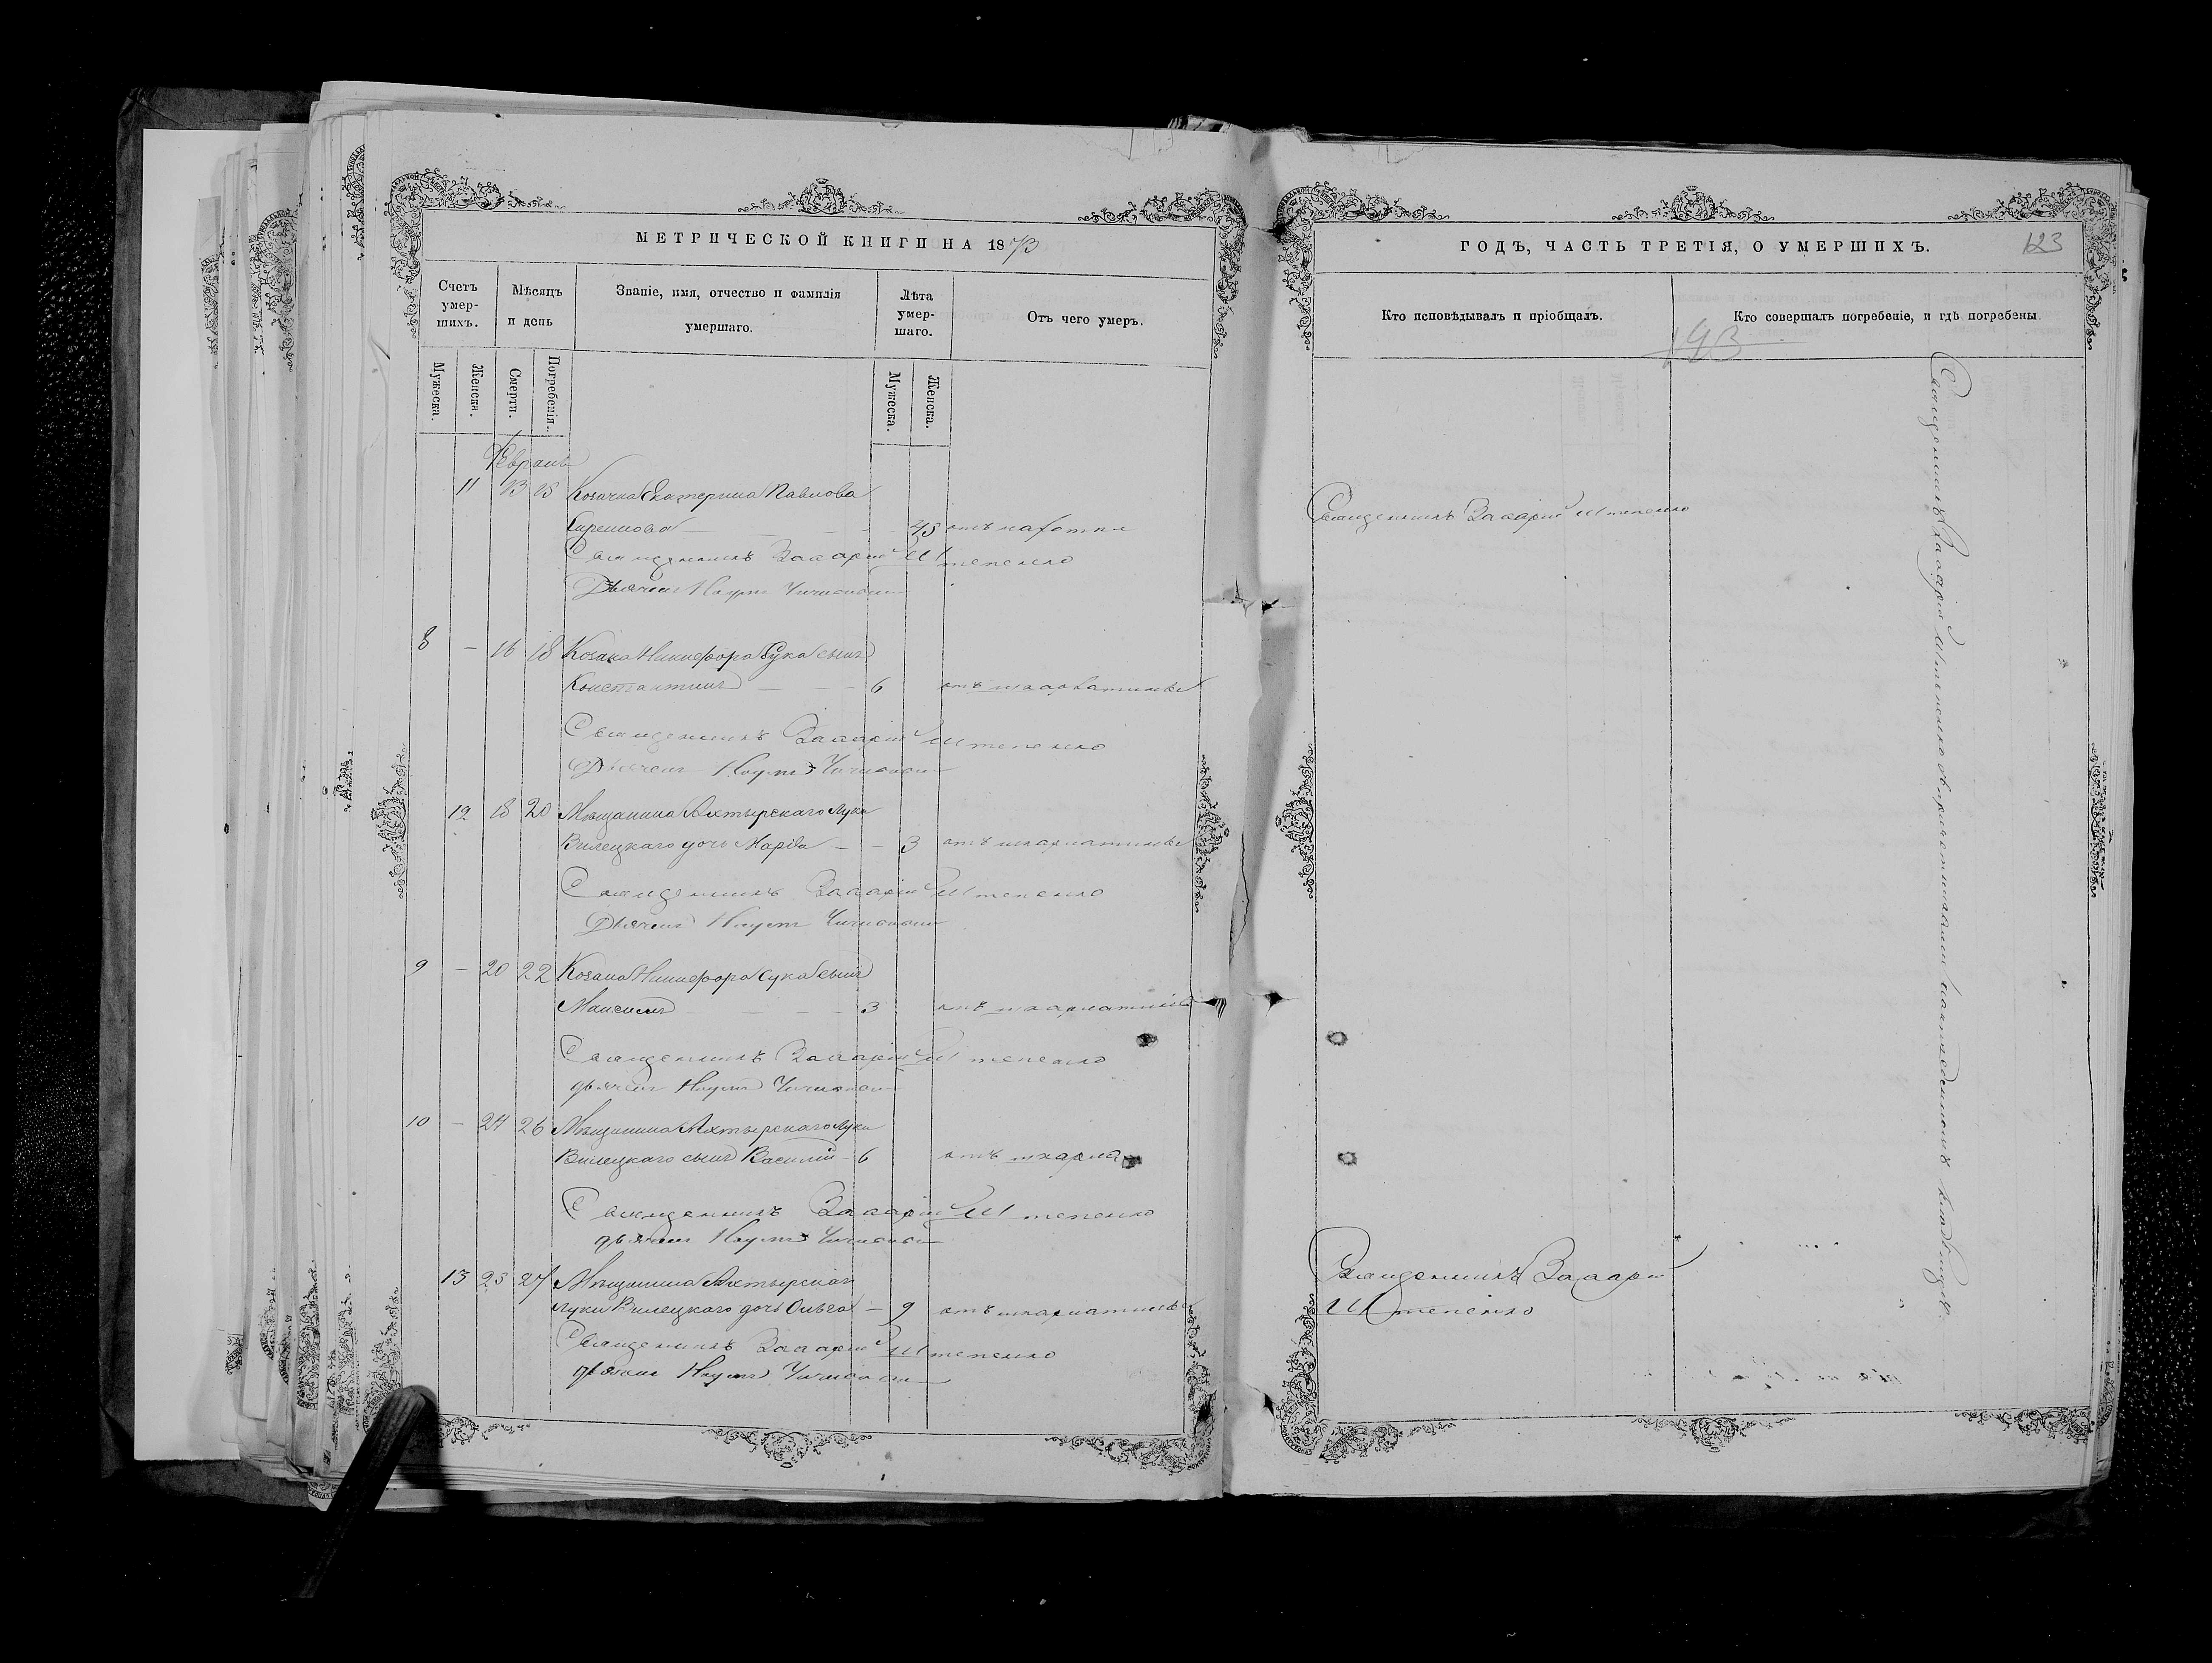 МЕТРИЧЕСКОЙ КНИГИ НА 1873
Счетъ умер-шихъ.
Мѣсяцъ и день
Званіе, имя, отчество и фамилія умершаго.
Лѣта умер-шаго.
Отъ чего умеръ.
Мужеска.
Женска.
Смерти.
Погребенія.
Мужеска.
Женска.
Февраль
11 13 15 Козачка Екатерина Павлова
45 отъ
Священникъ Захарій Штепенко
Дьячекъ Наумъ
8 – 16 18 Козака Никифора Сука сынъ
Константинъ – – – 6 отъ скарлатины
Священникъ Захарій Штепенко
Дьячекъ Наумъ
12 18 20 Мѣщанина Ахтырскаго Луки
Вилецкаго дочь Марія – – 3 отъ скарлатины
Священникъ Захарій Штепенко
Дьячекъ Наумъ
9 – 20 22 Козака Никифора Сука сынъ
Максимъ – – – – 3 отъ скарлатины
Священникъ Захарій Штепенко
дьячекъ Наумъ
10 – 24 26 Мѣщанина Ахтырскаго Луки
Вилецкаго сынъ Василій – 6 отъ скарла
Священникъ Захарій Штепенко
дьячекъ Наумъ
13 25 27 Мѣщанина Ахтырскаго
Луки Вилецкаго дочь Ольга – 9 отъ скарлатины
Священникъ Захарій Штепенко
дьячекъ Наумъ
ГОДЪ, ЧАСТЬ ТРЕТІЯ, О УМЕРШИХЪ.
123
Кто исповѣдывалъ и пріобщалъ.
Кто совершалъ погребеніе, и гдѣ погребены
193
Священникъ Захарій Штепенко
Священникъ Захарій
Штепенко
Священникъ Захарій Штепенко съ причетниками на приходскомъ кладбищѣ.